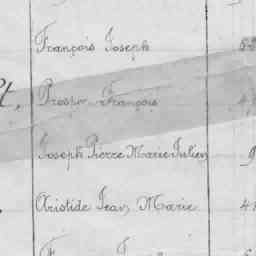 François Joseph
Prosper François
Joseph Pierre Marie Julien
Aristide Jean Marie